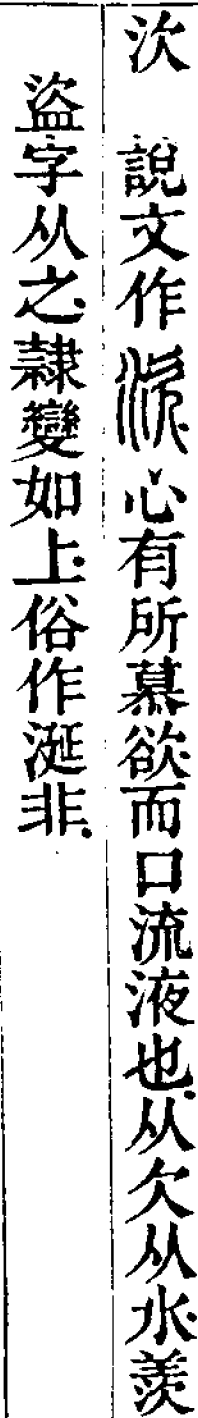 㳄　說文作㳄心有所慕欲而口流液也从欠从水羨
盜字从之隷變如上俗作涎非